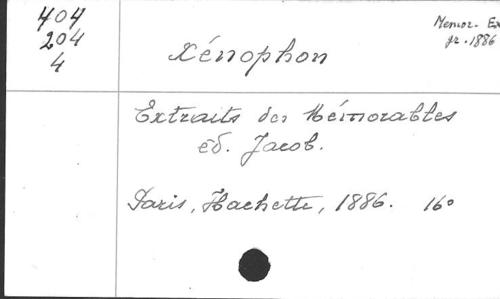 404
204
4
Memor. Ex
gr. 1886
Xénophon
Extraits des Mémorables
éd. Jacob.
Paris, Hachette, 1886. 16°